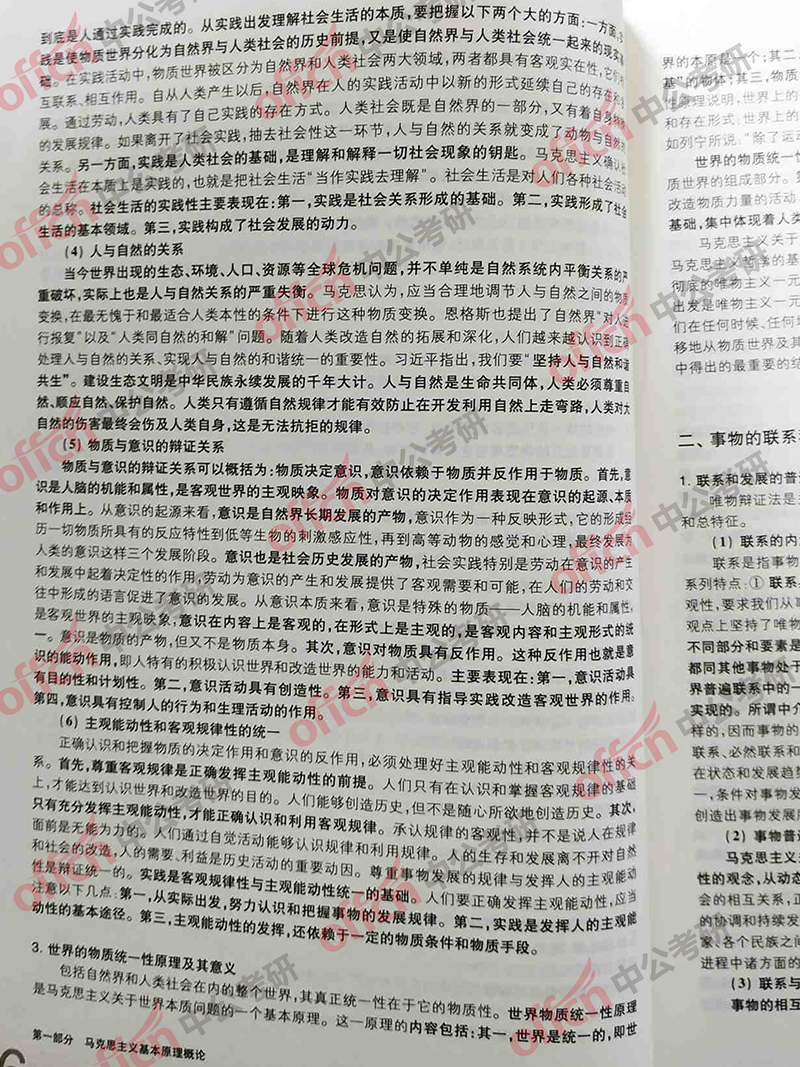 到底是人通过实践完成的。从实践出发理解社会生活的本质,要把握以下两个大的方面:一方面,实
践是使物质世界分化为自然界与人类社会的历史前提,又是使自然界与人类社会统一起来的现实基
础。在实践活动中,物质世界被区分为自然界和人类社会两大领域,两者都具有客观实在性,它们相
互联系、相互作用。自从人类产生以后,自然界在人的实践活动中以新的形式延续自己的存在和发
展。通过劳动,人类具有了自己实践的存在方式。人类社会既是自然界的一部分,又有着自身特殊
的发展规律。如果离开了社会实践,抽去社会性这一环节,人与自然的关系就变成了动物与自然的
关系。另一方面,实践是人类社会的基础,是理解和解释一切社会现象的钥匙。马克思主义确认社
会生活在本质上是实践的,也就是把社会生活“当作实践去理解”。社会生活是对人们各种社会活动
的总称。社会生活的实践性主要表现在:第一,实践是社会关系形成的基础。第二,实践形成了社会
生活的基本领域。第三,实践构成了社会发展的动力。
(4) 人与自然的关系
当今世界出现的生态、环境、人口、资源等全球危机问题,并不单纯是自然系统内平衡关系的严
重破坏,实际上也是人与自然关系的严重失衡。马克思认为,应当合理地调节人与自然之间的物质
变换,在最无愧于和最适合人类本性的条件下进行这种物质变换。恩格斯也提出了自然界“对人进
行报复”以及“人类同自然的和解”问题。随着人类改造自然的拓展和深化,人们越来越认识到正确
处理人与自然的关系、实现人与自然的和谐统一的重要性。习近平指出,我们要“坚持人与自然和谐
共生”。建设生态文明是中华民族永续发展的千年大计。人与自然是生命共同体,人类必须尊重自
然、顺应自然、保护自然。人类只有遵循自然规律才能有效防止在开发利用自然上走弯路,人类对大
自然的伤害最终会伤及人类自身,这是无法抗拒的规律。
(5) 物质与意识的辩证关系
物质与意识的辩证关系可以概括为:物质决定意识,意识依赖于物质并反作用于物质。首先,意
识是人脑的机能和属性,是客观世界的主观映象。物质对意识的决定作用表现在意识的起源、本质
和作用上。从意识的起源来看,意识是自然界长期发展的产物,意识作为一种反映形式,它的形成经
历一切物质所具有的反应特性到低等生物的刺激感应性,再到高等动物的感觉和心理,最终发展为
人类的意识这样三个发展阶段。意识也是社会历史发展的产物,社会实践特别是劳动在意识的产生
和发展中起着决定性的作用,劳动为意识的产生和发展提供了客观需要和可能,在人们的劳动和交
往中形成的语言促进了意识的发展。从意识本质来看,意识是特殊的物质——人脑的机能和属性,
是客观世界的主观映象,意识在内容上是客观的,在形式上是主观的,是客观内容和主观形式的统
一。意识是物质的产物,但又不是物质本身。其次,意识对物质具有反作用。这种反作用也就是意
识的能动作用,即人特有的积极认识世界和改造世界的能力和活动。主要表现在:第一,意识活动具
有目的性和计划性。第二,意识活动具有创造性。第三,意识具有指导实践改造客观世界的作用。
第四,意识具有控制人的行为和生理活动的作用。
(6) 主观能动性和客观规律性的统一
正确认识和把握物质的决定作用和意识的反作用,必须处理好主观能动性和客观规律性的关
系。首先,尊重客观规律是正确发挥主观能动性的前提。人们只有在认识和掌握客观规律的基础
上,才能达到认识世界和改造世界的目的。人们能够创造历史,但不是随心所欲地创造历史。其次,
只有充分发挥主观能动性,才能正确认识和利用客观规律。承认规律的客观性,并不是说人在规律
面前是无能为力的。人们通过自觉活动能够认识规律和利用规律。人类的生存和发展离不开对自然
和社会的改造,人的需要、利益是历史活动的重要动因。尊重事物发展的规律与发挥人的主观能动
性是辩证统一的。实践是客观规律性与主观能动性统一的基础。人们要正确发挥主观能动性,应当
注意以下几点:第一,从实际出发,努力认识和把握事物的发展规律。第二,实践是发挥人的主观能
动性的基本途径。第三,主观能动性的发挥,还依赖于一定的物质条件和物质手段。
3. 世界的物质统一性原理及其意义
包括自然界和人类社会在内的整个世界,其真正统一性在于它的物质性。世界物质统一性原理
是马克思主义关于世界本质问题的一个基本原理。这一原理的内容包括:其一,世界是统一的,即世
第一部分 马克思主义基本原理概论
界的本原是一个;其二,
基”的物体;其三,物质
性原理说明,世界上的
和存在形式;世界上的
如列宁所说:“除了运动
世界的物质统一性
质世界的组成部分。
改造物质力量的活动
基础,集中体现着人类
马克思主义关于
马克思主义哲学的基
彻底的唯物主义一元
出发是唯物主义一元
们在任何时候、任何
移地从物质世界及其
中得出的最重要的结
二、事物的联系和
1. 联系和发展的普遍
唯物辩证法是
和总特征。
(1) 联系的内
联系是指事物
系列特点:① 联系
观性,要求我们从事
观点上坚持了唯物
不同部分和要素是
都同其他事物处于
界普遍联系中的一
实现的。所谓中介
样的,因而事物的
联系、必然联系和
在状态和发展趋势
一,条件对事物发
创造出事物发展
(2) 事物普遍
马克思主义
性的观念,从动态
会的相互关系,正
的协调和持续发
家、各个民族之间
进程中诸方面的
(3) 联系与
事物的相互
offcn 中公考研